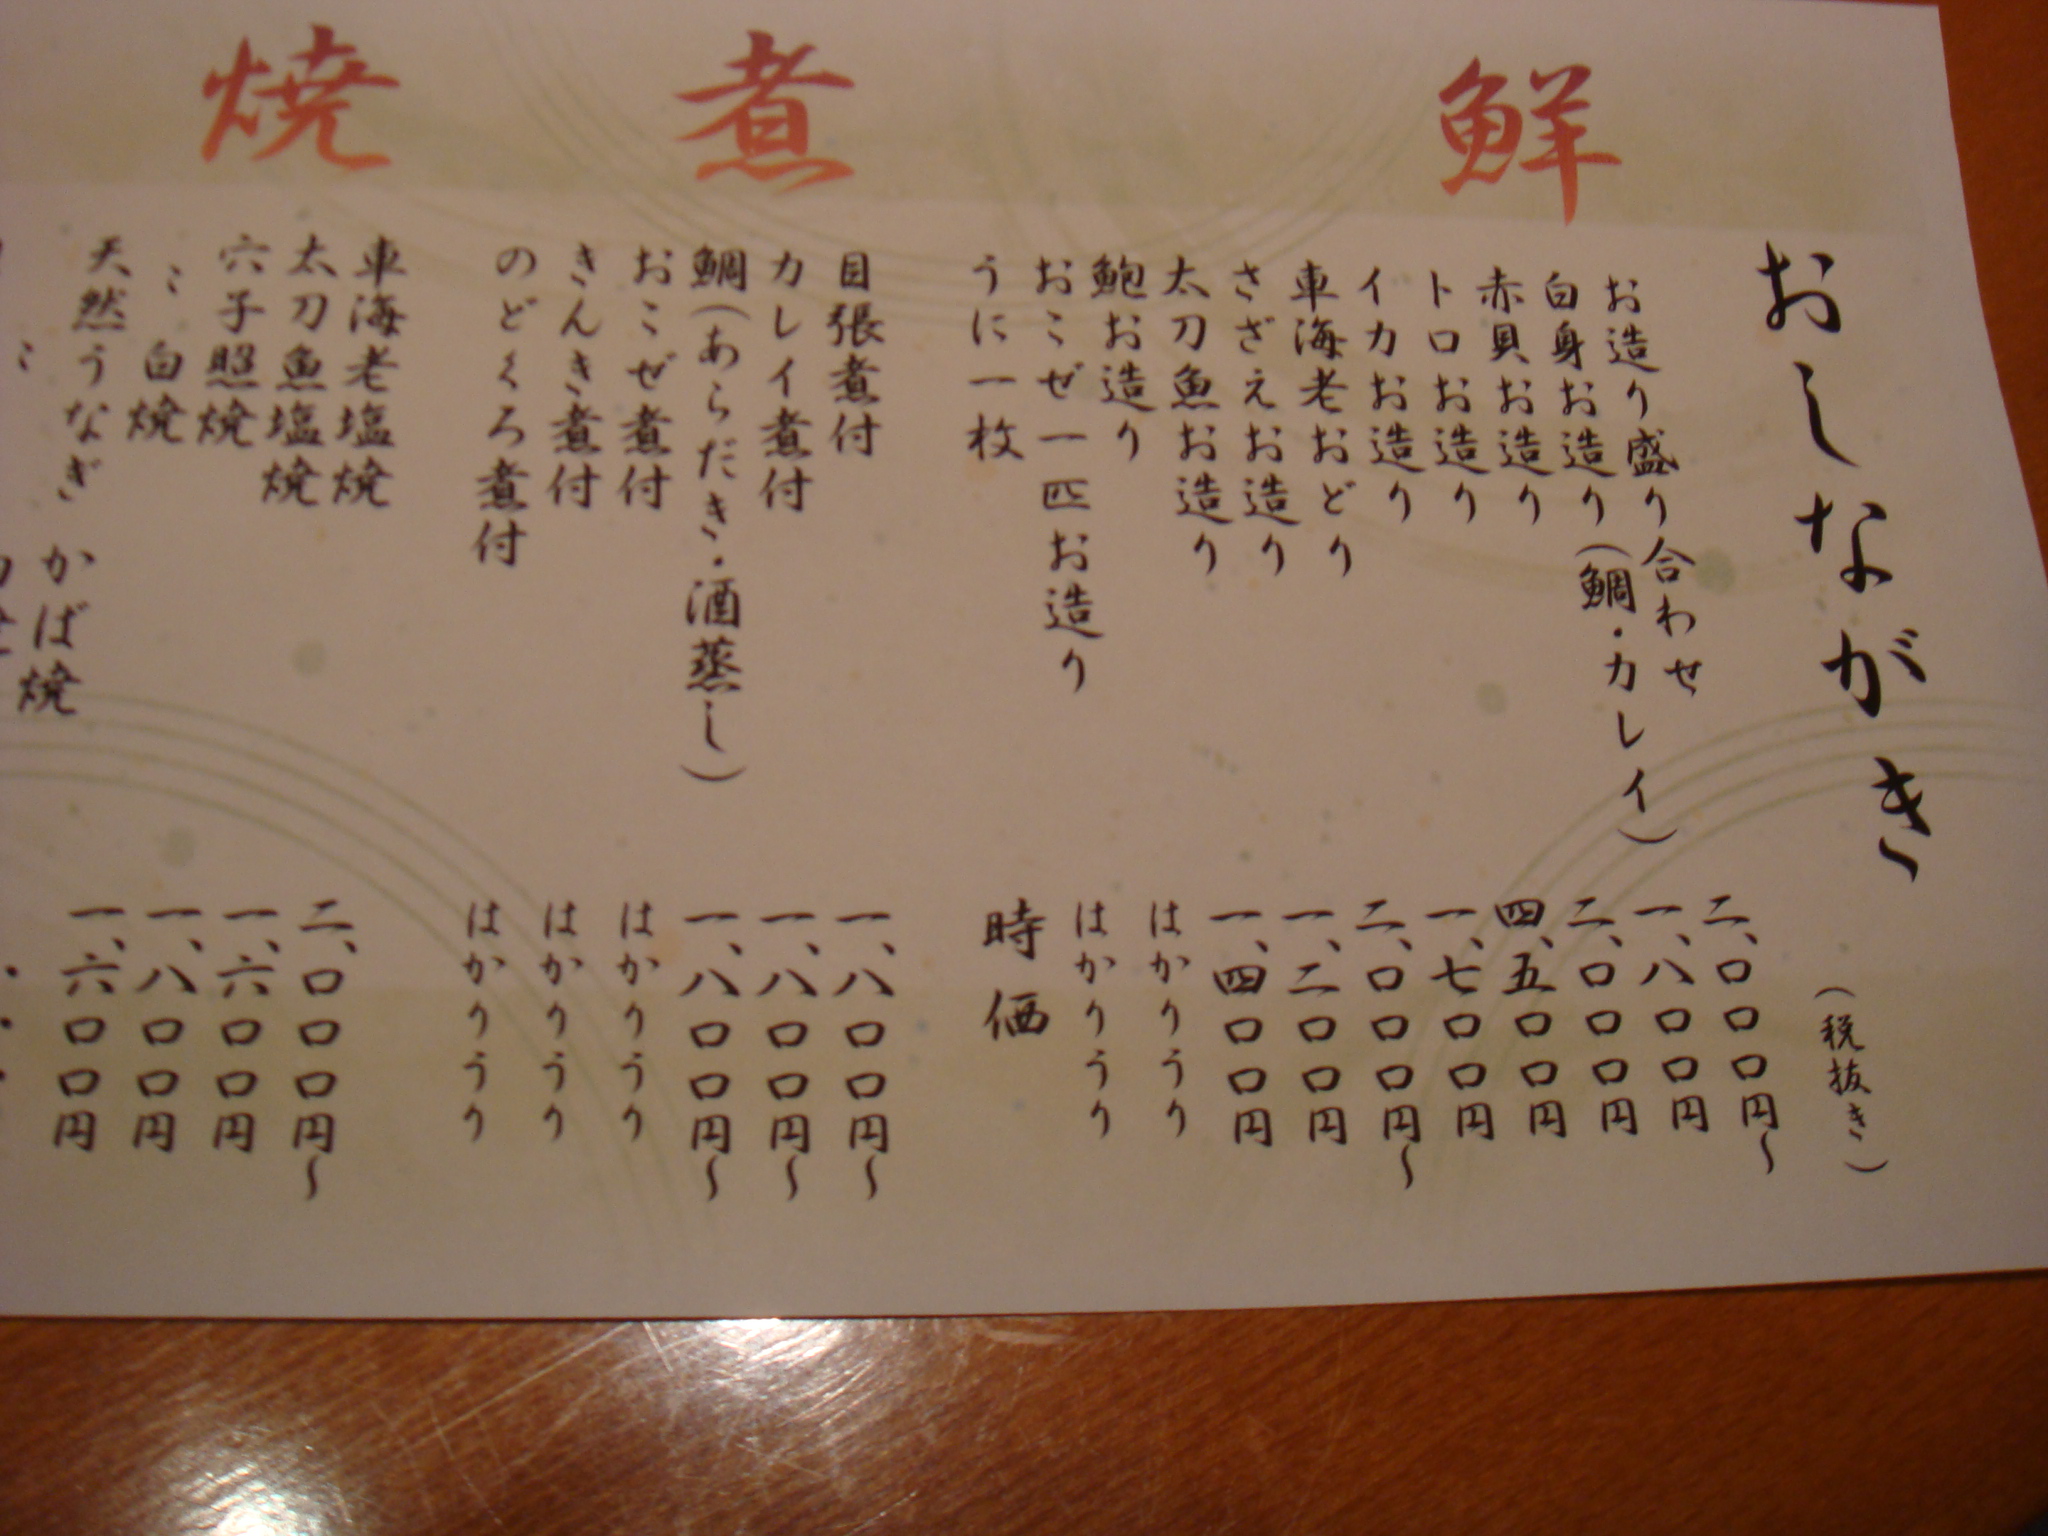 おしながき
（税抜き）
鮮
お造り盛り合わせ 二、〇〇〇円～
白身お造り（鯛・カレイ） 一、八〇〇円
赤貝お造り 二、〇〇〇円
トロお造り 四、五〇〇円
イカお造り 一、七〇〇円
車海老おどり 二、〇〇〇円～
さざえお造り 一、二〇〇円
太刀魚お造り 一、四〇〇円
鮑お造り はかりうり
おこぜ一匹お造り はかりうり
うに一枚 時価
煮
目張煮付 一、八〇〇円～
カレイ煮付 一、八〇〇円～
鯛（あらだき・酒蒸し） 一、八〇〇円～
おこぜ煮付 はかりうり
きんき煮付 はかりうり
のどくろ煮付 はかりうり
焼
車海老塩焼 二、〇〇〇円～
太刀魚塩焼 一、六〇〇円
穴子照焼 一、八〇〇円
〃 白焼 一、六〇〇円
天然うなぎ かば焼